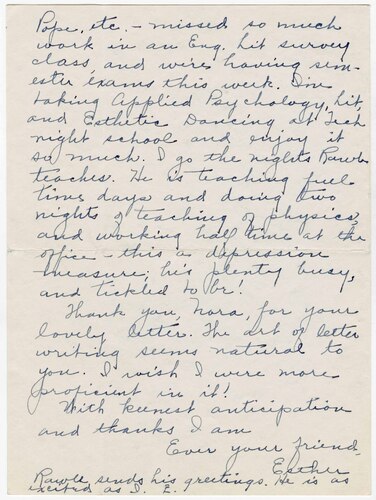 Pope, etc. - missed so much
work in an Eng. lit survey
class and we're having sem-
ester exams this week. I'm
taking Applied Psychology, lit,
and Esthetic Dancing at Tech
night school and enjoy it
so much. I go the nights
teaches. He is teaching full
time days and doing two
nights of teaching of physics,
and working half time at the
office - this a depression
measure; he's plenty busy,
and tickled to be!
Thank you, Nora, for your
lovely letter. The art of letter
writing seems natural to
you. I wish I were more
proficient in it!
With keenest anticipation
and thanks I am
Ever your friend,
Esther
sends his greetings. He is as
excited as I. E.